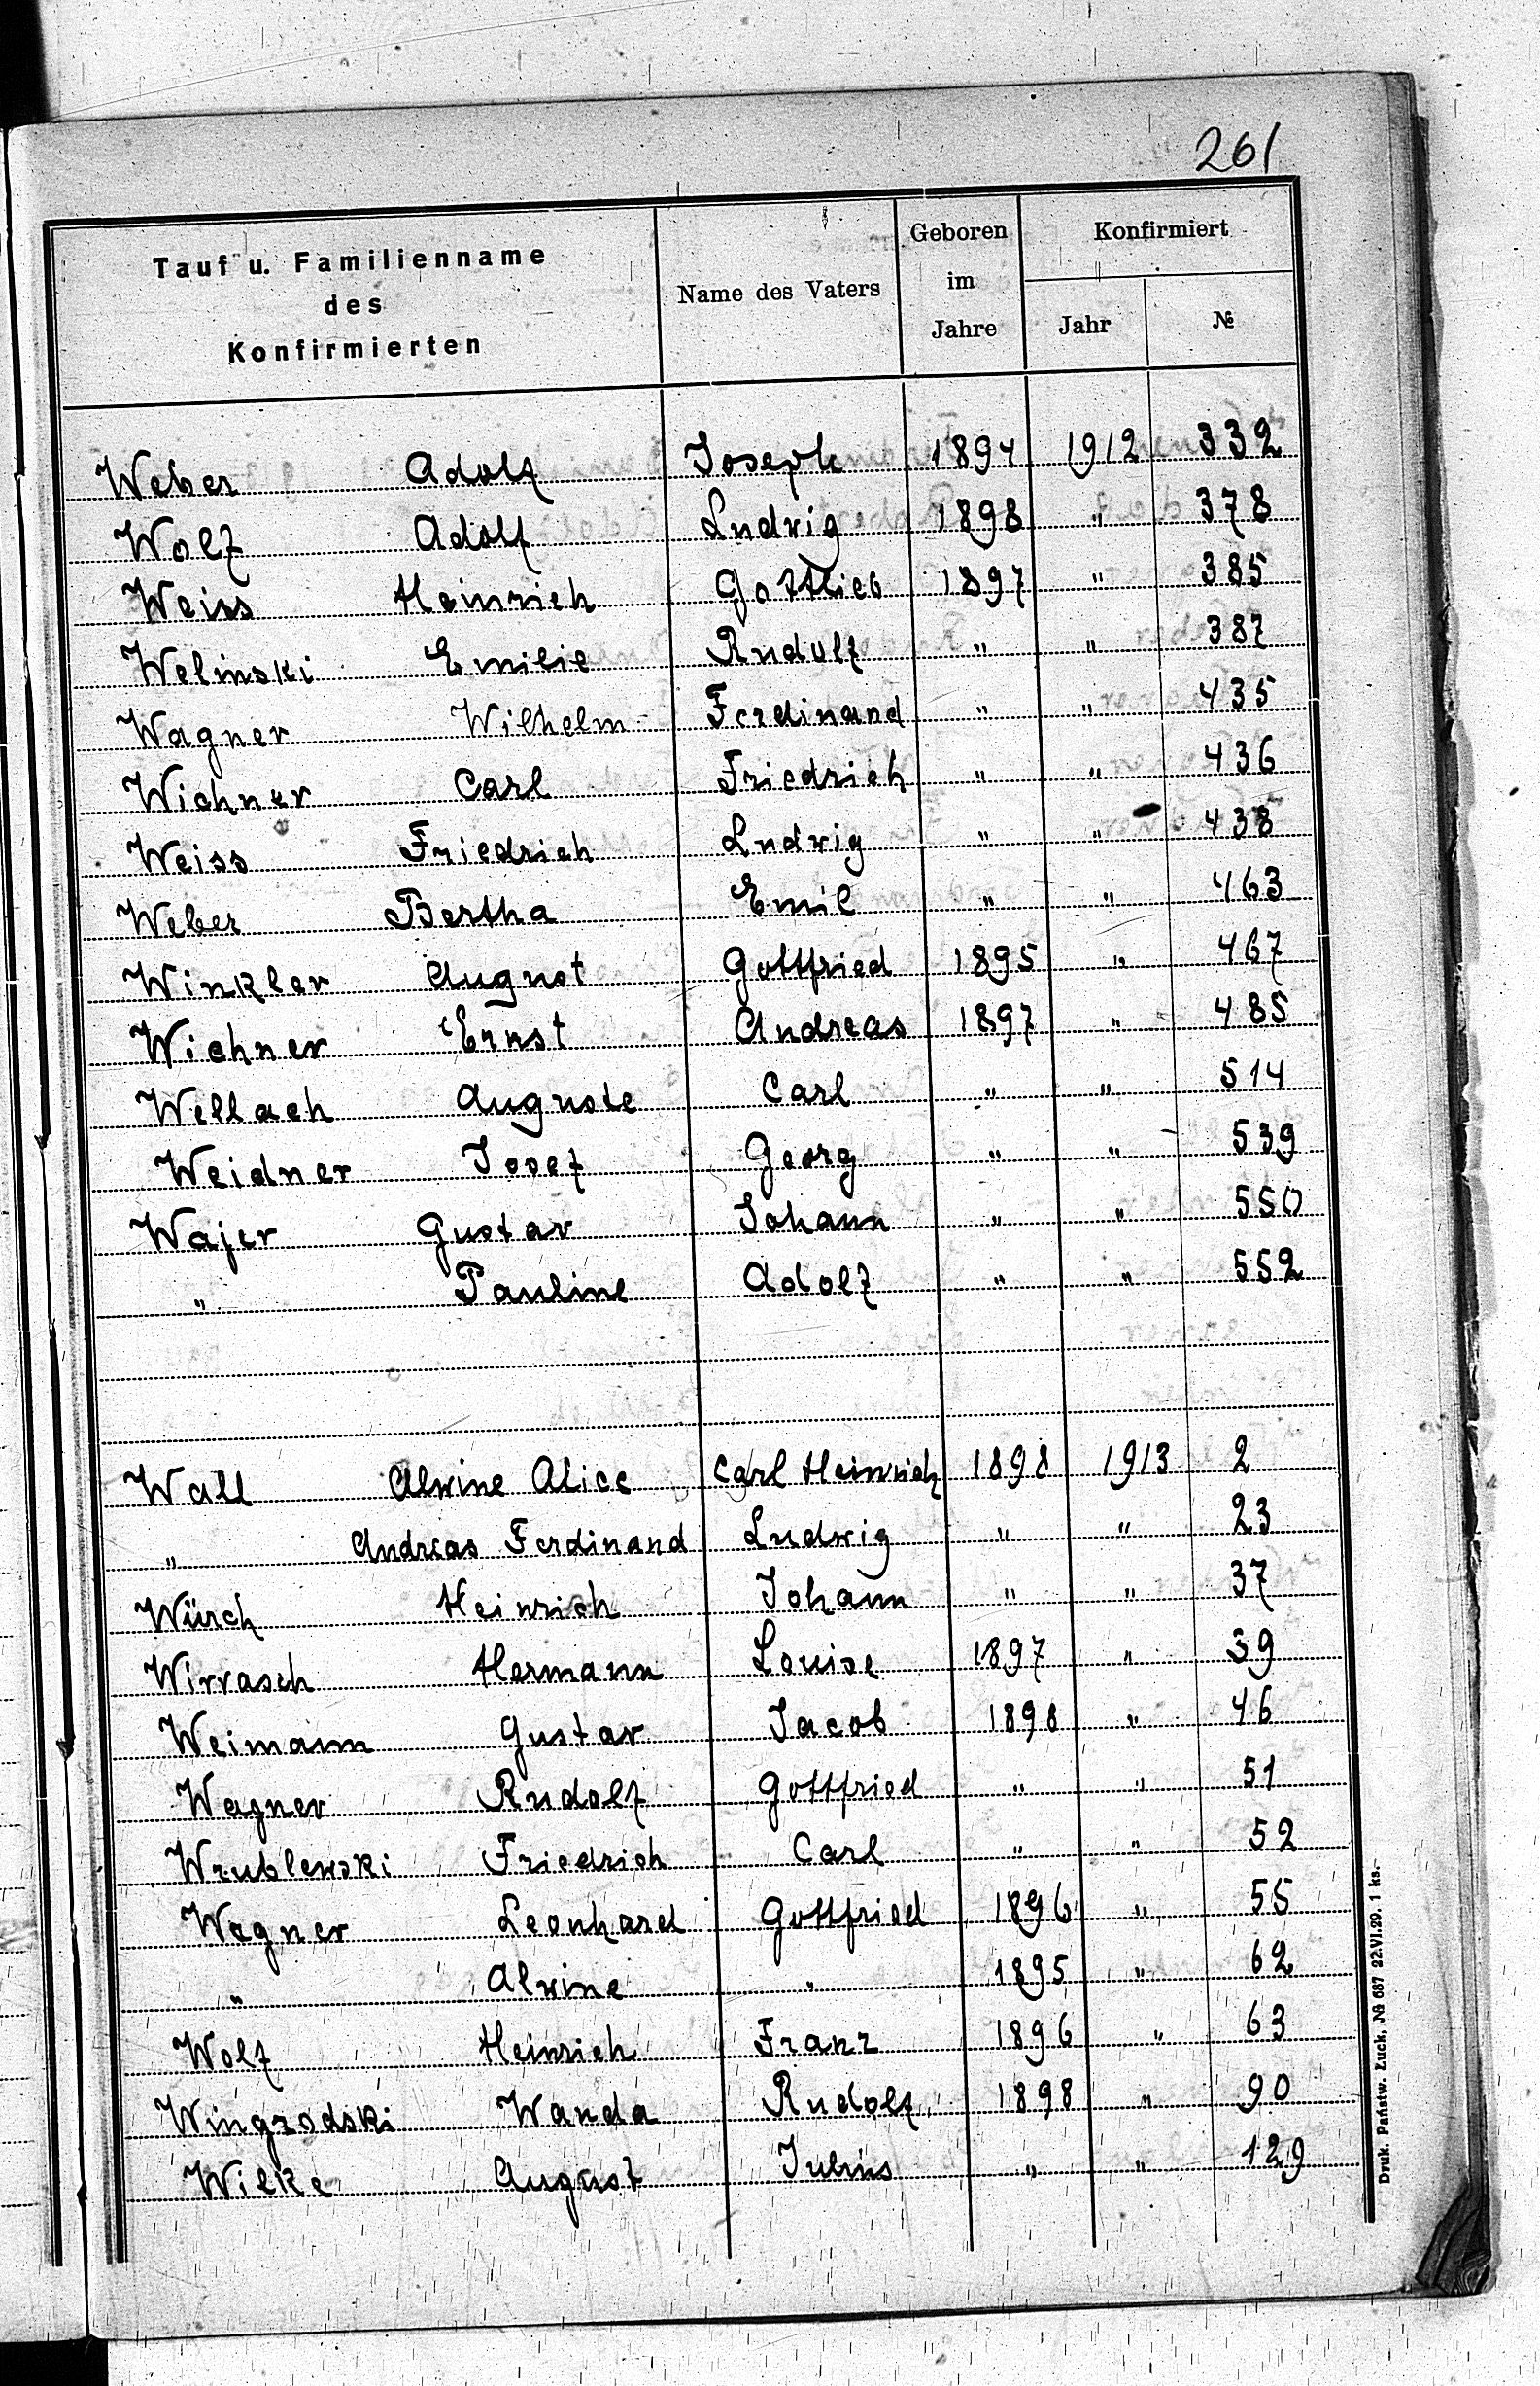 261
Tauf u. Familienname des Konfirmierten | Name des Vaters | Geboren im Jahre | Konfirmiert Jahr | №
Weber Adolf Joseph 1894 1912 332
Wolf Adolf Ludwig 1898 " 378
Weiss Heinrich Gottlieb 1897 " 385
Welinski Emilie Rudolf " " 387
Wagner Wilhelm Ferdinand " " 435
Wichner Carl Friedrich " " 436
Weiss Friedrich Ludwig " " 438
Weber Bertha Emil " " 463
Winkler August Gottfried 1895 " 467
Wichner Ernst Andreas 1897 " 485
Wellach Auguste Carl " " 514
Weidner Josef Georg " " 539
Wajer Gustav Johann " " 550
" Pauline Adolf " " 552
Wall Alwine Alice Carl Heinrich 1898 1913 2
" Andreas Ferdinand Ludwig " " 23
Würch Heinrich Johann " " 37
Wirrasch Hermann Louise 1897 " 39
Weimann Gustav Jacob 1898 " 46
Wagner Rudolf Gottfried " " 51
Wrublewski Friedrich Carl " " 52
Wagner Leonhard Gottfried 1896 " 55
" Alwine " 1895 " 62
Wolf Heinrich Franz 1896 " 63
Wingrodski Wanda Rudolf 1898 " 90
Wilke August Julius " " 129
Druk. Państw. Łuck, № 687 22.VI.29. 1 ks.